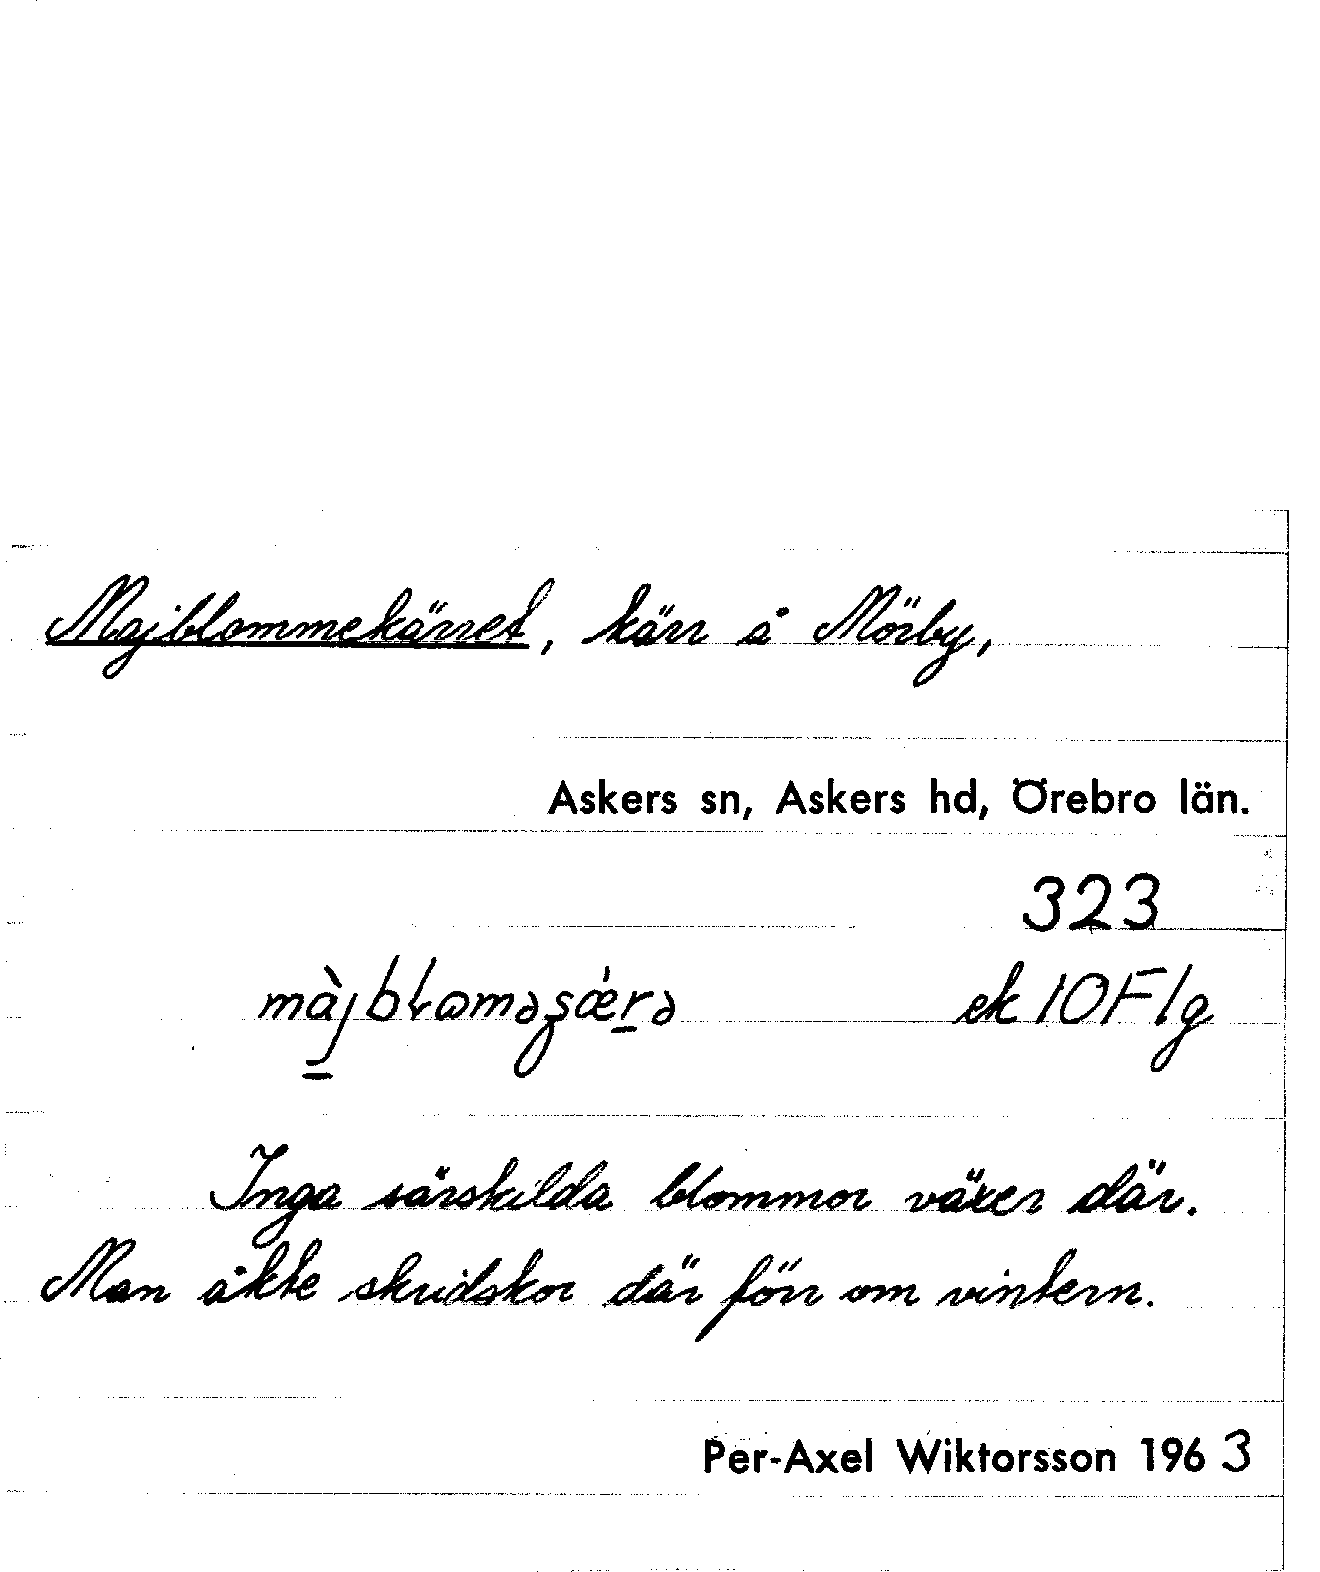 Majblommekärret, kärr å Mörby,
Askers sn, Askers hd, Örebro län.
323
mà̠jbɫωməʂœ́r̠ə ek 10F1g
Inga särskilda blommor växer där.
Man åkte skridskor där förr om vintern.
Per-Axel Wiktorsson 1963